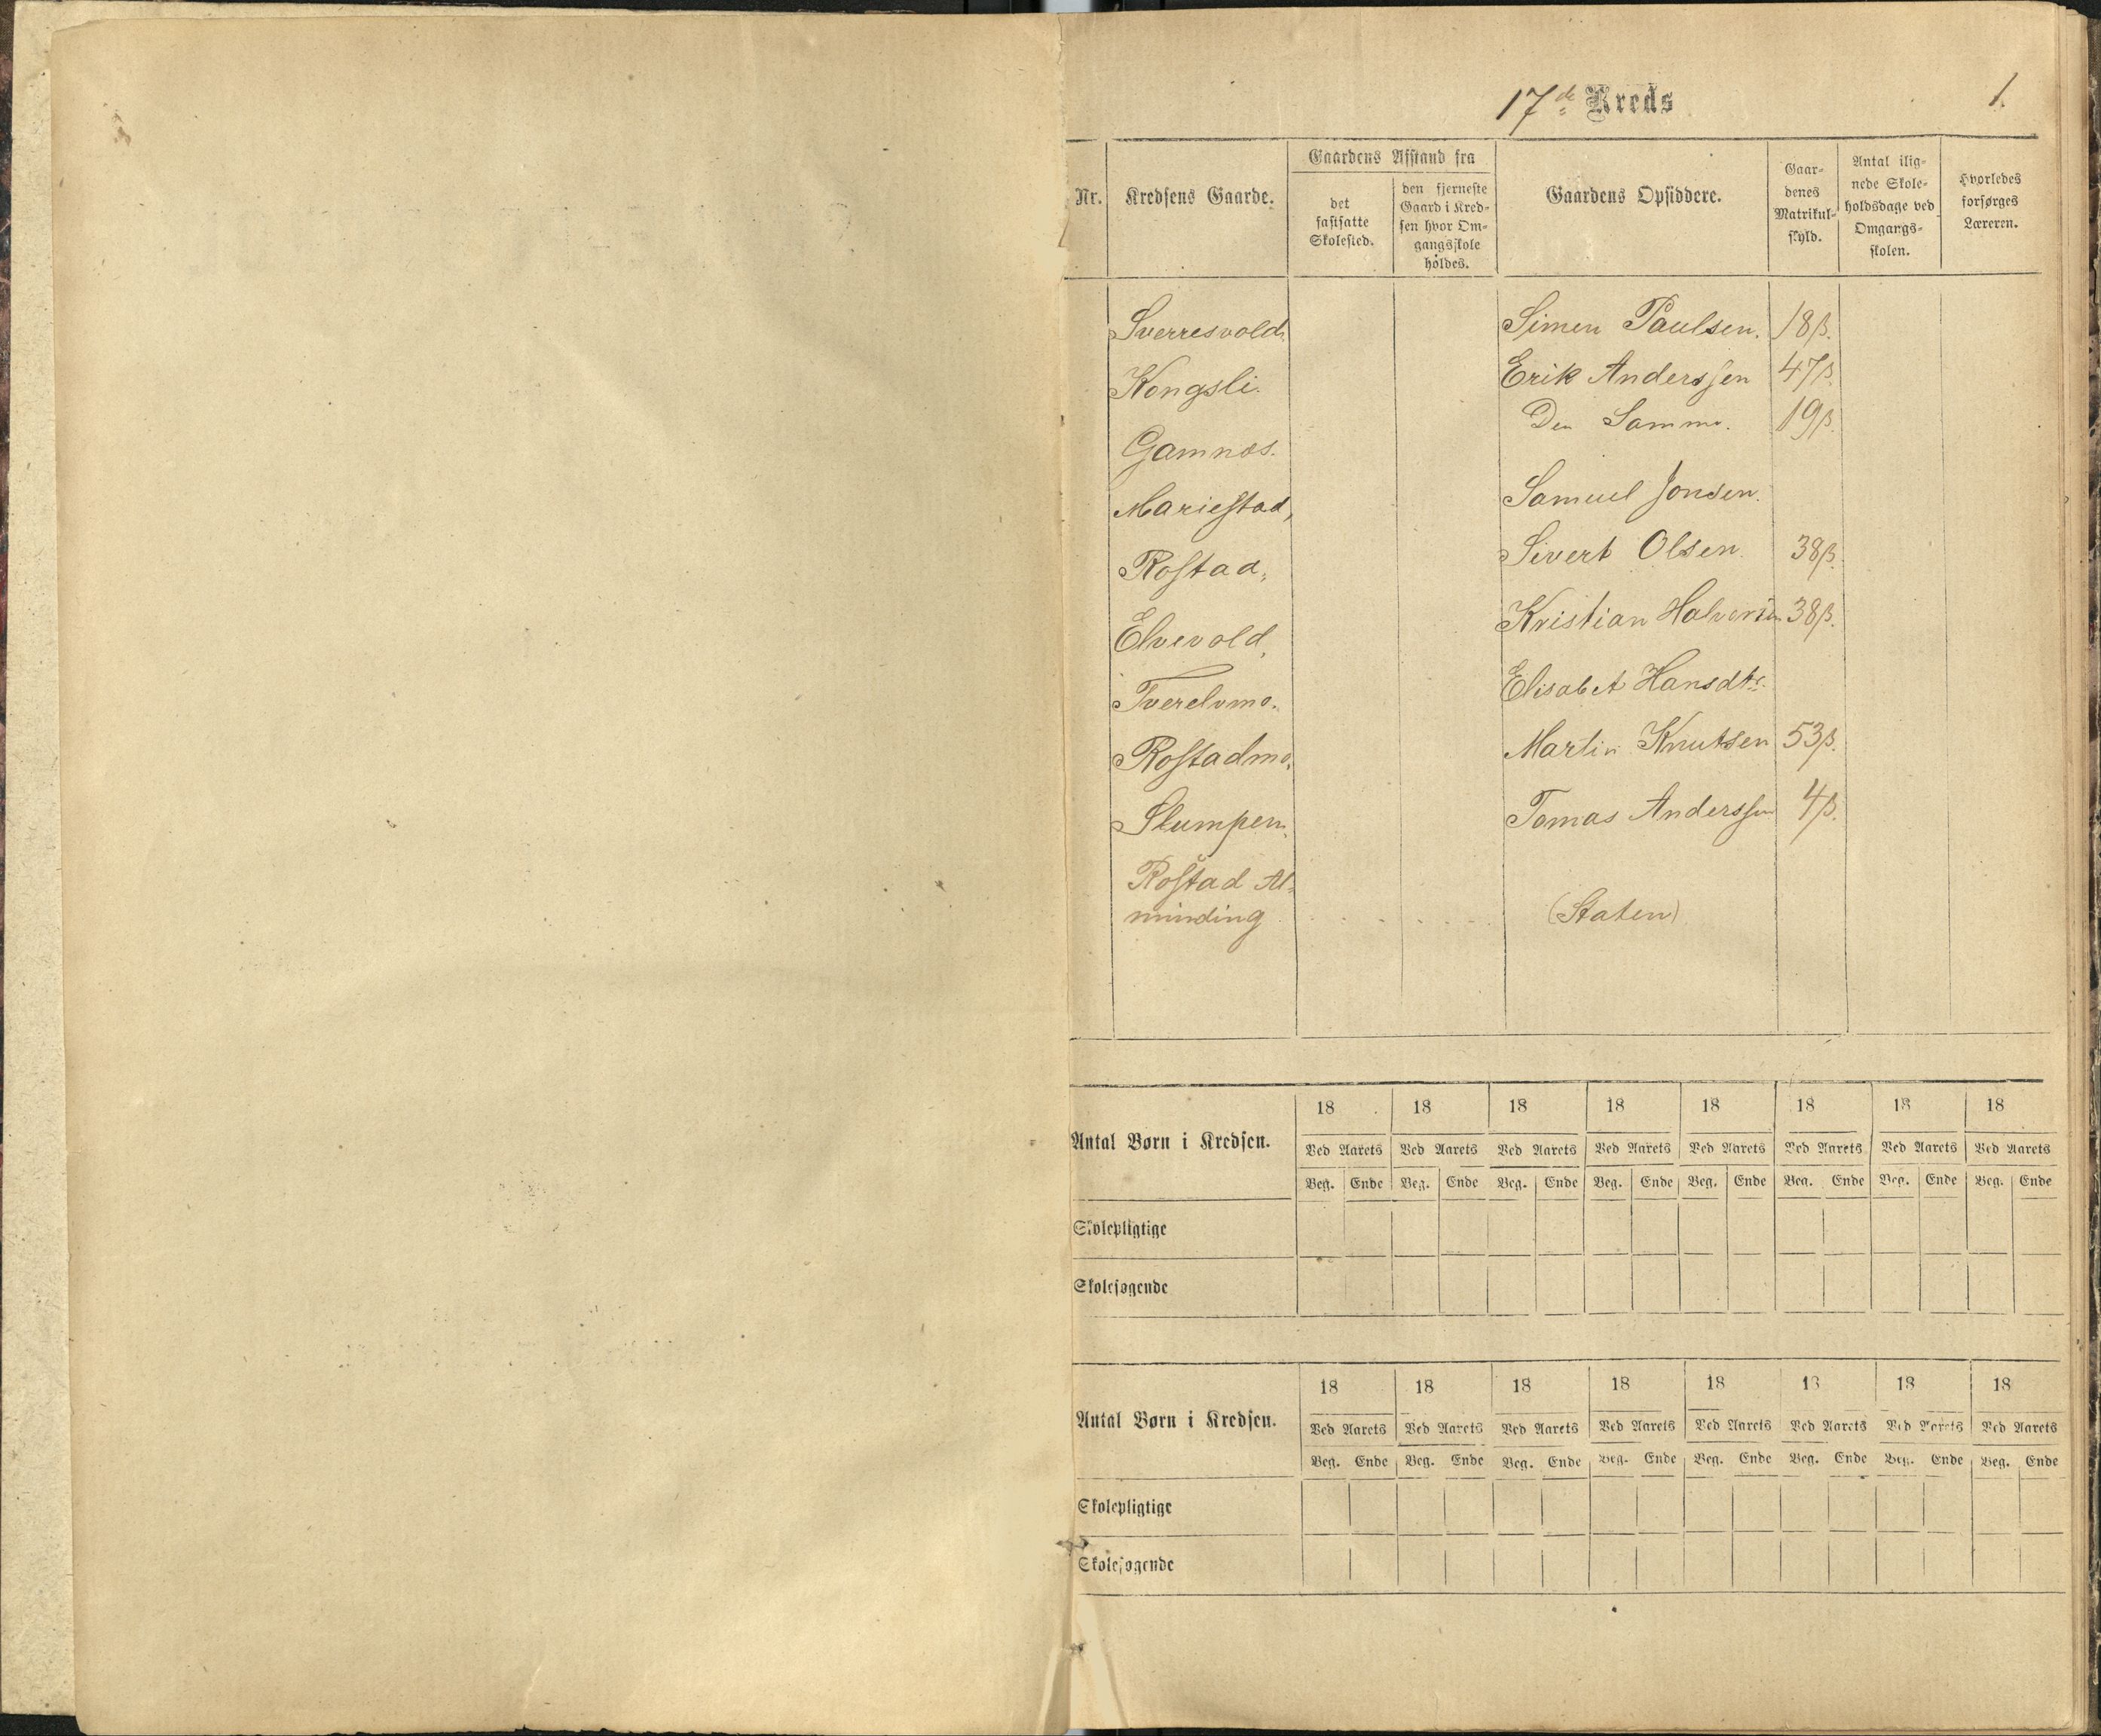 17de Kreds 1.
Nr. Kredsens Gaarde. Gaardens Afstand fra det fastsatte Skolested. den fjerneste Gaard i Kred-sen hvor Om-gangsskole holdes. Gaardens Opsiddere. Gaar-denes Matrikul-skyld. Antal ilig-nede Skole-holdsdage ved Omgangs-skolen. Hvorledes forsørges Læreren.
Sverresvold. Simen Paulsen. 18 ß.
Kongsli. Erik Anderssen 47 ß.
Gamnæs. Den Samme. 19 ß.
Mariestad, Samuel Jonsen.
Rostad, Sivert Olsen. 38 ß.
Elvevold, Kristian Halvorsen 38 ß.
Tverelvmo. Elisabet Hansdtr.
Rostadmo. Martin Knutsen 53 ß.
Slumpen. Tomas Anderssen 4 ß.
Rostad Al-
minding . . . . . . . (Staten)
Antal Børn i Kredsen. 18 18 18 18 18 18 18 18
Ved Aarets Ved Aarets Ved Aarets Ved Aarets Ved Aarets Ved Aarets Ved Aarets Ved Aarets
Beg. Ende Beg. Ende Beg. Ende Beg. Ende Beg. Ende Beg. Ende Beg. Ende Beg. Ende
Skolepligtige
Skolesøgende
Antal Børn i Kredsen. 18 18 18 18 18 18 18 18
Ved Aarets Ved Aarets Ved Aarets Ved Aarets Ved Aarets Ved Aarets Ved Aarets Ved Aarets
Beg. Ende Beg. Ende Beg. Ende Beg. Ende Beg. Ende Beg. Ende Beg. Ende Beg. Ende
Skolepligtige
Skolesøgende